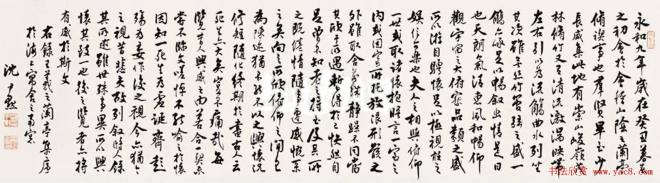 永和九年歲在癸丑暮春
之初會于會稽山陰之蘭亭
脩禊事也羣賢畢至少
長咸集此地有崇山峻嶺茂
林脩竹又有清流激湍映帶
左右引以為流觴曲水列坐
其次雖無絲竹管弦之盛一
觴一詠亦足以暢敘幽情是日
也天朗氣清惠風和暢仰
觀宇宙之大俯察品類之盛
所以游目騁懷足以極視聽之
娛信可樂也夫人之相與俯仰
一世或取諸懷抱晤言一室之
內或因寄所託放浪形骸之
外雖取舍萬殊靜躁不同當
其欣於所遇暫得於己快然自
足曾不知老之將至及其所
之既倦情隨事遷感慨係
之矣向之所欣俛仰之間已
為陳迹猶不能不以之興懷況
修短隨化終期於盡古人云
死生亦大矣豈不痛哉每
攬昔人興感之由若合一契未
嘗不臨文嗟悼不能喻之於懷
固知一死生為虛誕齊彭
殤為妄作後之視今亦猶今
之視昔悲夫故列敘時人錄
其所述雖世殊事異所以興
懷其致一也後之覽者亦將
有感於斯文
右錄王羲之蘭亭集序
於海上寓舍之
沈尹默
书法欣赏